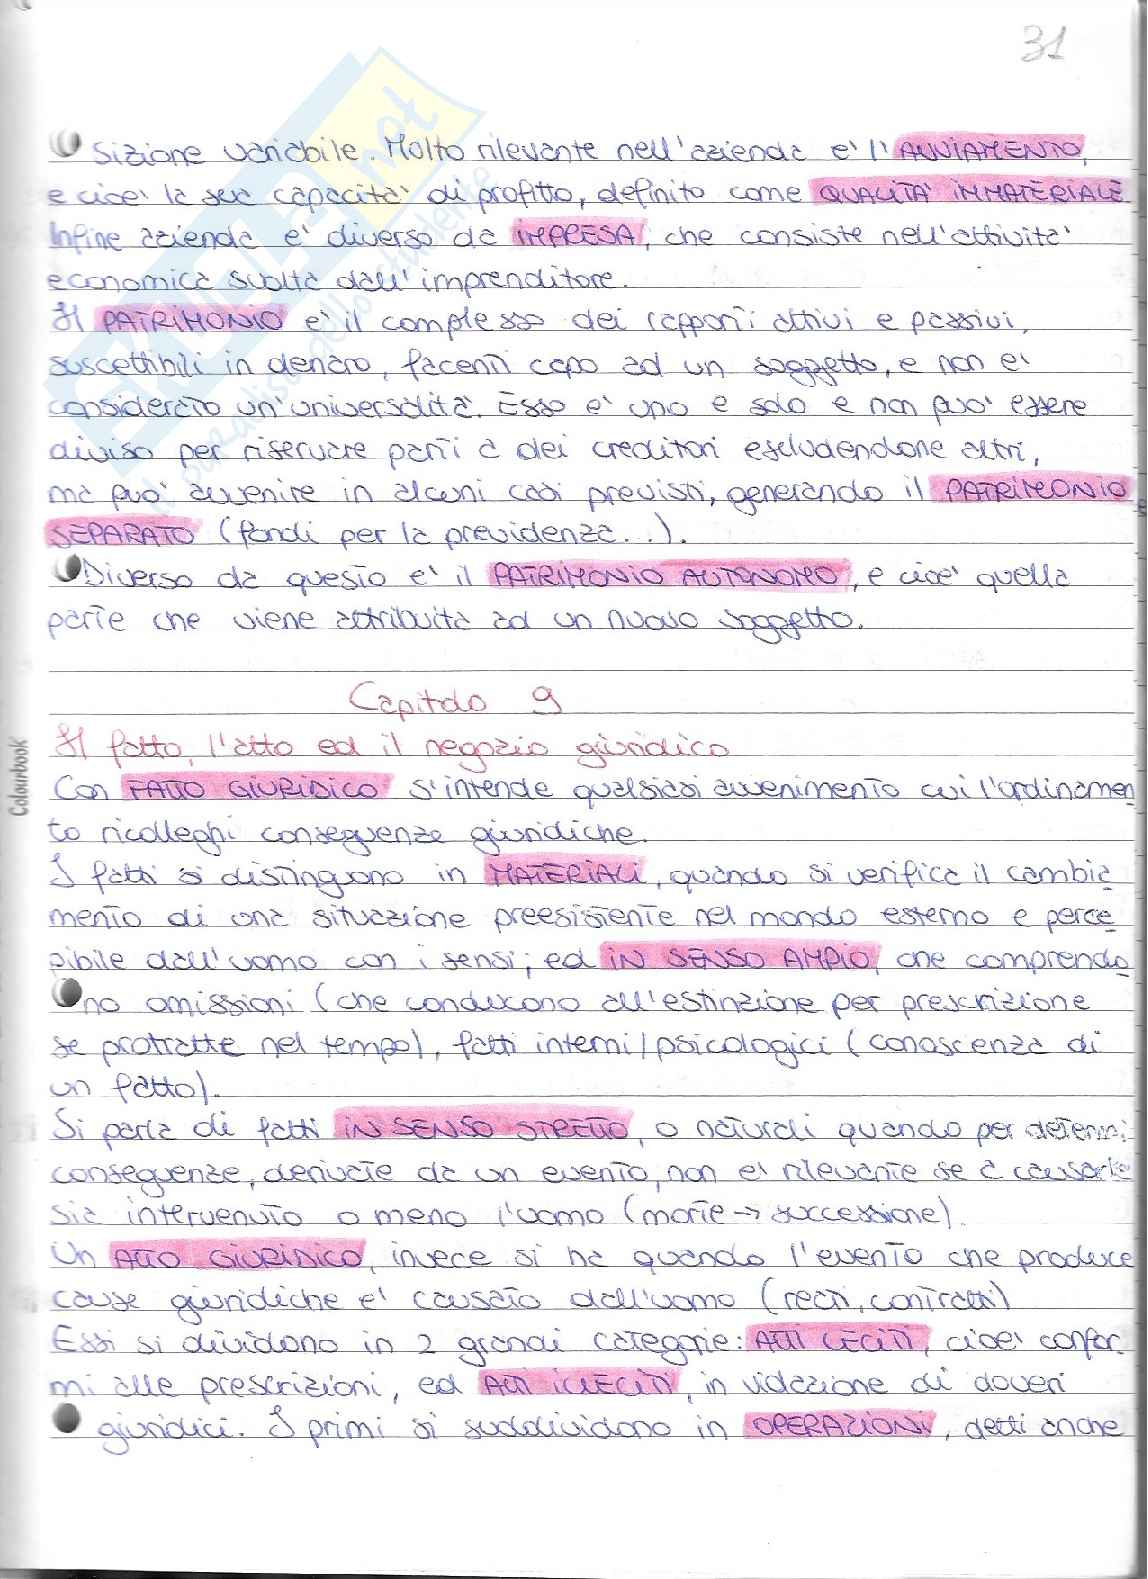 31
sizione variabile. Molto rilevante nell'azienda e' l'AVVIAMENTO,
e cioe' la sua capacita' di profitto, definito come QUALITA' IMMATERIALE
Infine azienda e' diverso da IMPRESA, che consiste nell'attivita'
economica svolta dall'imprenditore.
Il PATRIMONIO e' il complesso dei rapporti attivi e passivi,
suscettibili in denaro, facenti capo ad un soggetto, e non e'
considerato un'universalita'. Esso e' uno e solo e non puo' essere
diviso per riservare parti a dei creditori escludendone altri,
ma puo' avvenire in alcuni casi previsti, generando il PATRIMONIO
SEPARATO (fondi per la previdenza...).
Diverso da questo e' il PATRIMONIO AUTONOMO, e cioe' quella
parte che viene attribuita ad un nuovo soggetto.
Capitolo 9
Il fatto, l'atto ed il negozio giuridico
Con FATTO GIURIDICO s'intende qualsiasi avvenimento cui l'ordinamen
to ricolleghi conseguenze giuridiche.
I fatti si distinguono in MATERIALI, quando si verifica il cambia
mento di una situazione preesistente nel mondo esterno e perce
pibile dall'uomo con i sensi; ed IN SENSO AMPIO, che comprendo
no omissioni (che conducono all'estinzione per prescrizione
se protratte nel tempo), fatti interni/psicologici (conoscenza di
un fatto).
Si parla di fatti IN SENSO STRETTO, o naturali quando per determi
conseguenze, derivate da un evento, non e' rilevante se a causarle
sia intervenuto o meno l'uomo (morte → successione).
Un ATTO GIURIDICO, invece si ha quando l'evento che produce
cause giuridiche e' causato dall'uomo (reati, contratti)
Essi si dividono in 2 grandi categorie: ATTI LECITI, cioe' confor
mi alle prescrizioni, ed ATTI ILLECITI, in violazione di doveri
giuridici. I primi si suddividono in OPERAZIONI, detti anche
Colourbook
SKUOLA.net
il paradiso dello studente